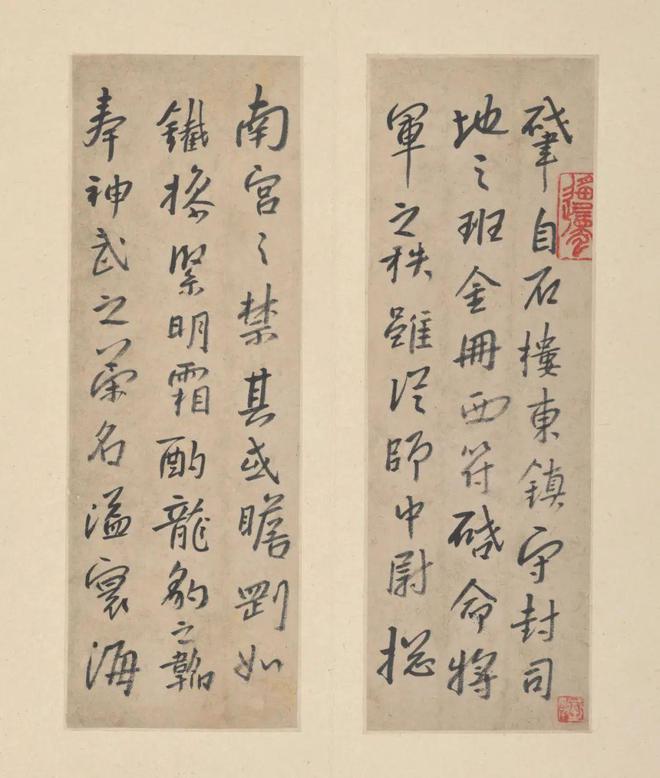 肇自石樓東鎮守封司
地之班金冊西符啓命將
軍之秩雖從師中尉摠
南宮之禁其或瞻罰如
鐵操緊明霜酌龍豹之韜
奉神武之榮名溢寰海